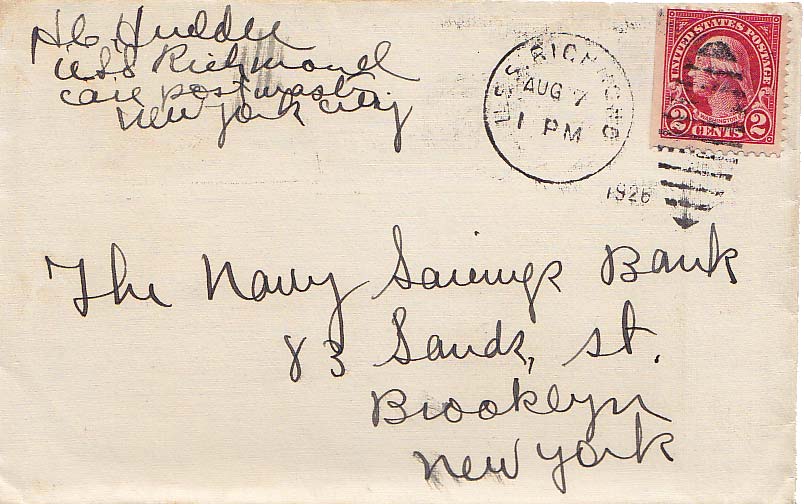 USS Richmond
care postmaster
New York City
U.S.S. RICHMOND
AUG 7
1 PM
1926
UNITED STATES POSTAGE
WASHINGTON
2 CENTS 2
The Navy Savings Bank
83 Sands, st.
Brooklyn
New York